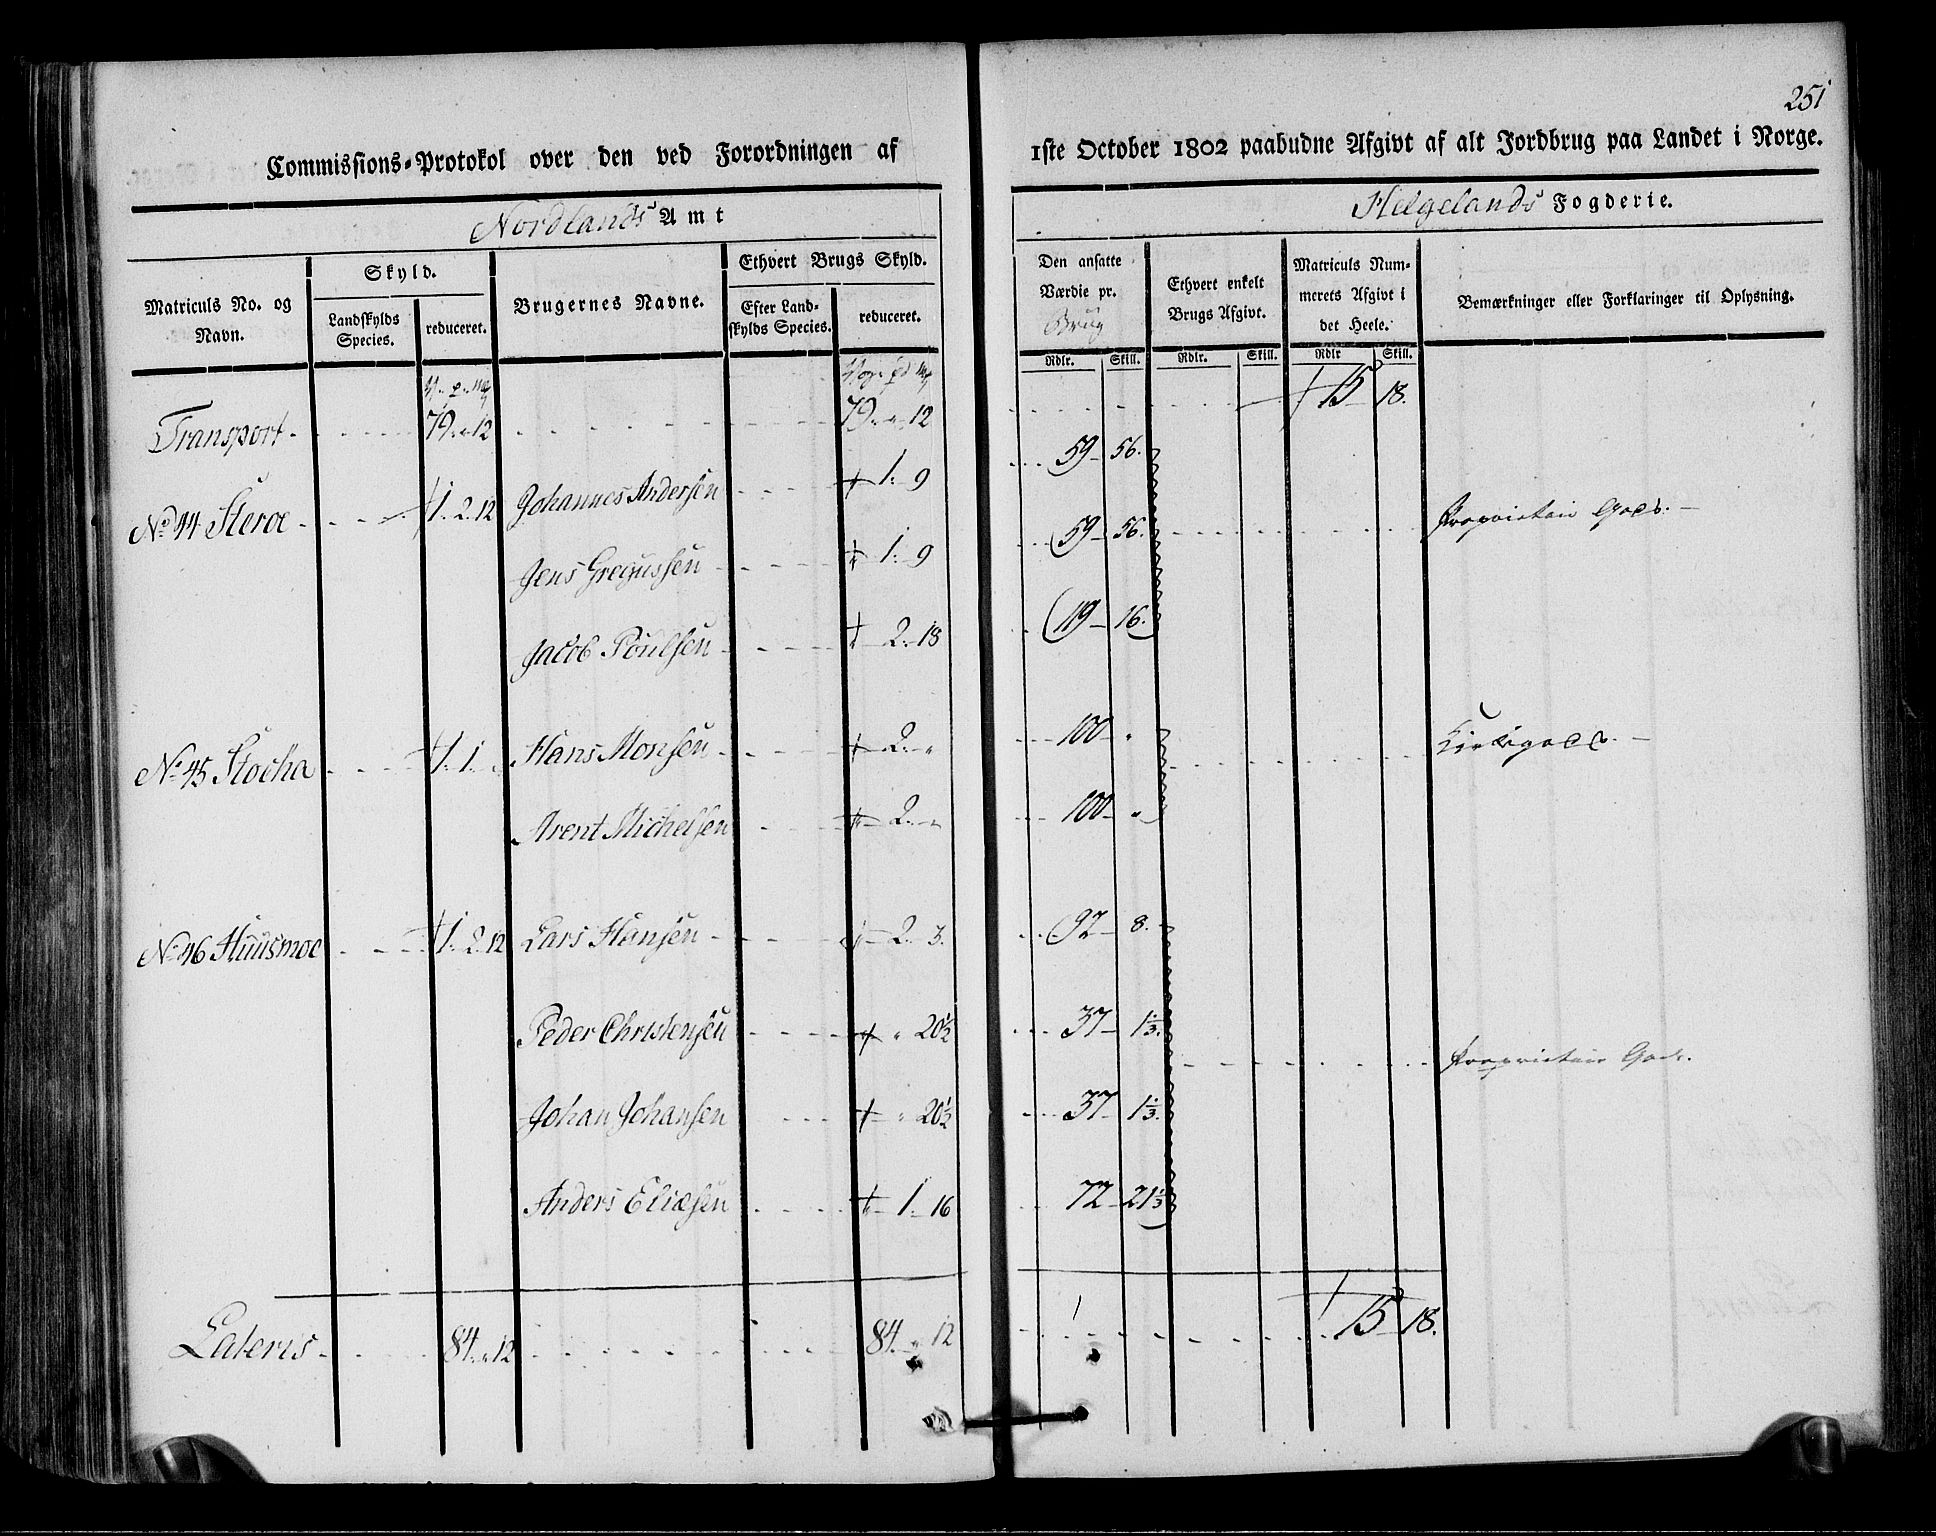 251
Commissions-Protokol over den ved Forordningen af 1ste October 1802 paabudne Afgivt af alt Jordbrug paa Landet i Norge.
Nordlands Amt
Helgelands Fogderie.
Matriculs No. og Navn.
Skyld.
Landskylds Species.
reduceret.
Brugernes Navne.
Ethvert Brugs Skyld.
Efter Landskylds Species.
reduceret.
Den ansatte Værdie pr. Brug
Ethvert enkelt Brugs Afgivt.
Matriculs Nummerets Afgivt i det Heele.
Bemærkninger eller Forklaringer til Oplysning.
Rdlr. Skill. Rdlr. Skill. Rdlr Skill.
Transport 79 " 12 79 " 12 15 18.
59 56.
No 44 Steroe 1. 2. 12 Johannes Andersen 1. 9
Proprietair Gods.
Jens Gregussen 1. 9 59 56.
Jacob Poulsen 2. 18 119 16.
No 45 Stocha 1. 1. " Hans Monsen 2. " 100 "
Kirkegods.
Arent Michelsen 2. " 100 "
No 46 Huusmoe 1. 2. 12 Lars Hansen 2. 3. 92 8.
Peder Christensen " 20½ 37 1⅓.
Proprietair Gods.
Johan Johansen " 20½ 37 1⅓.
Anders Eliæsen 1. 16 72 21⅓
Lateris 84. " 12 84. " 12 15 18.